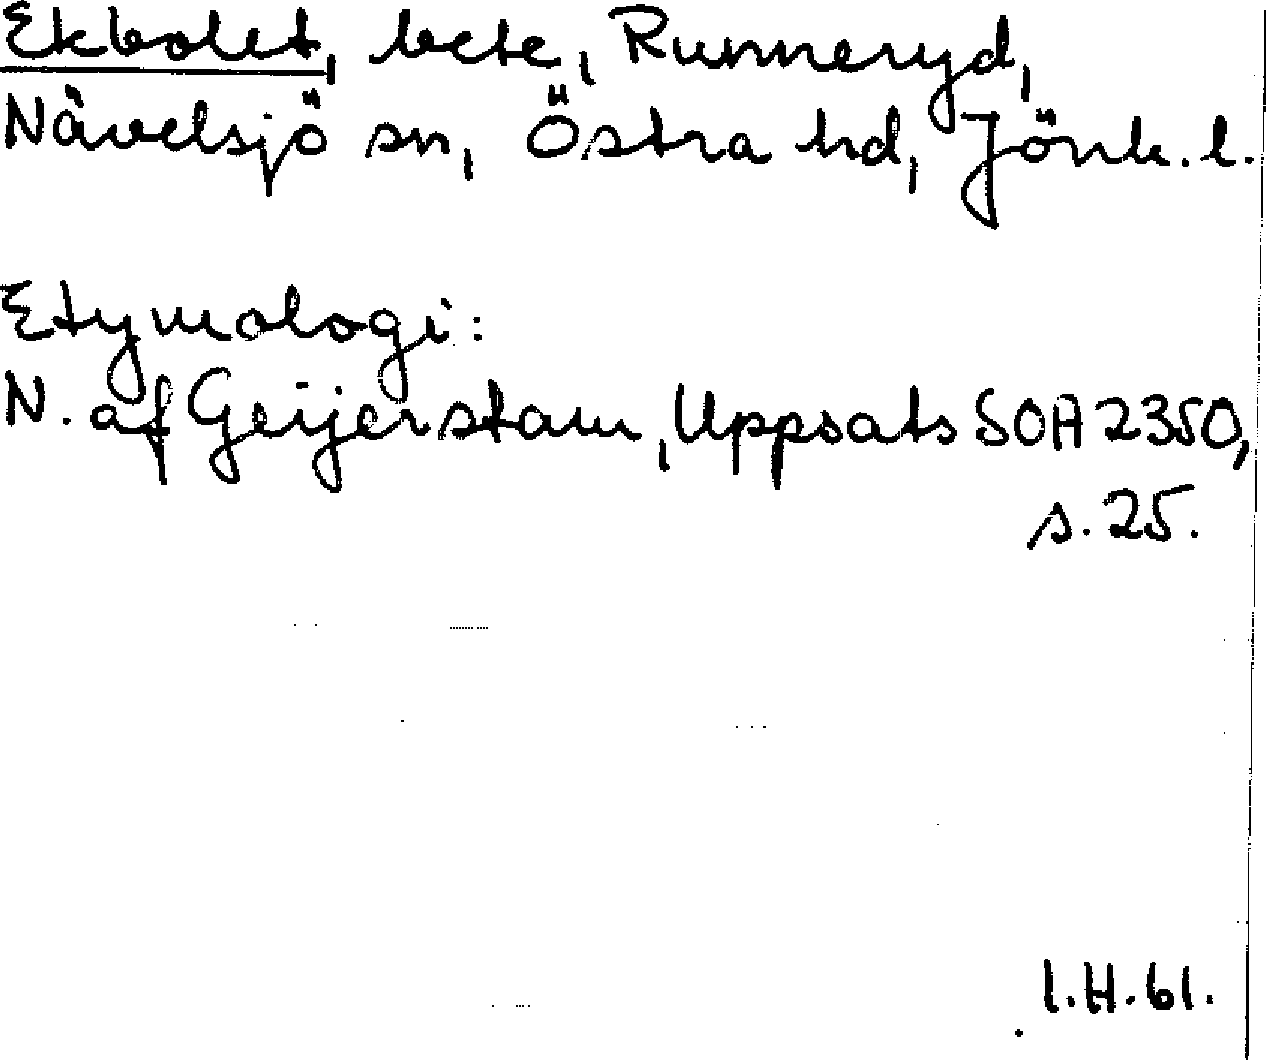 Ekbolet, bete, Runneryd,
Nävelsjö sn, Östra hd, Jönk. l.
Etymologi:
N. af Geijerstam, Uppsats SOA 2350,
s. 25.
I.H. 61.